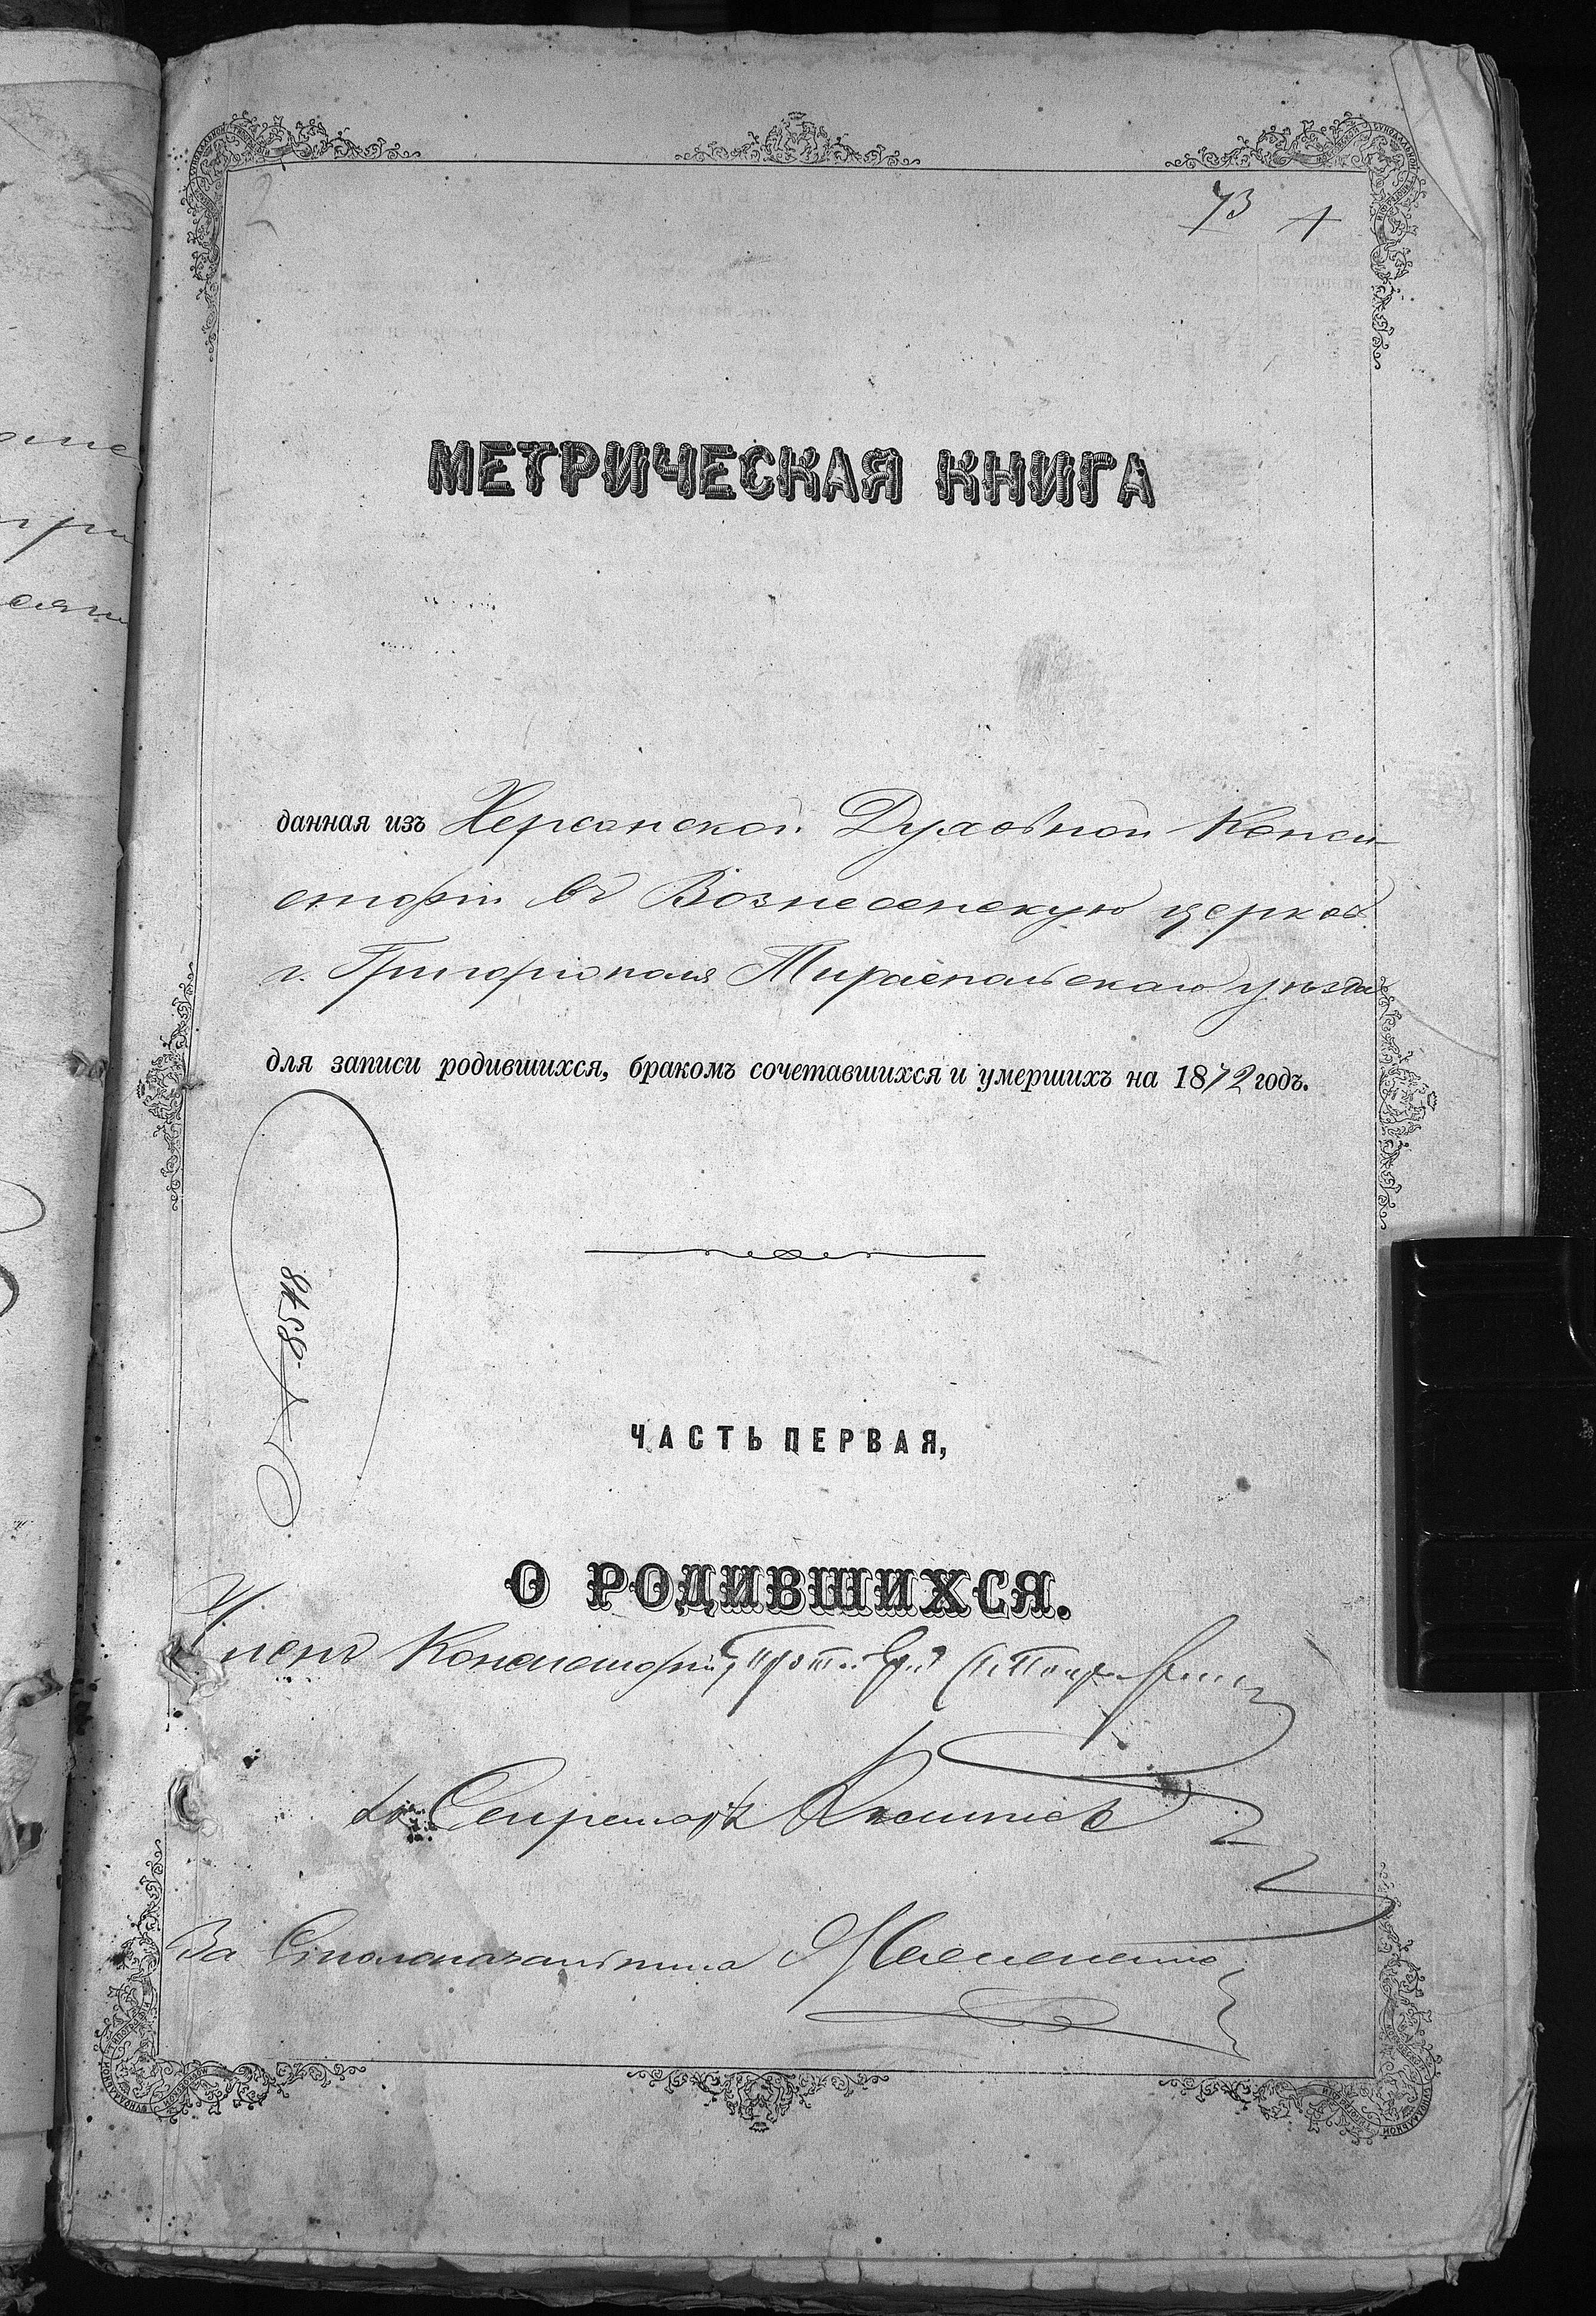 73 1
МЕТРИЧЕСКАЯ КНИГА
данная изъ Херсонской Духовной Конси-
сторіи въ Вознесенскую церковь
г. Григоріополя Тираспольскаго уѣзда
для записи родившихся, бракомъ сочетавшихся и умершихъ на 1872 годъ.
ЧАСТЬ ПЕРВАЯ,
О РОДИВШИХСЯ.
Членъ Консисторіи,
Секретарь
За Столоначальника